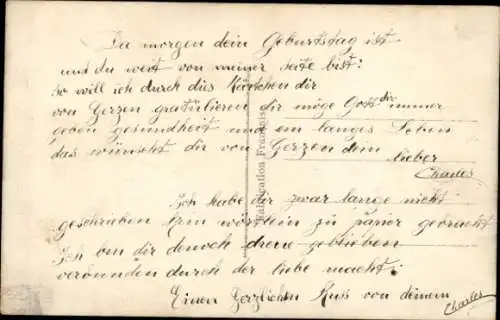 Da morgen dein Geburtstag ist
und du weit von meiner seite bist:
so will ich durch dies Kärtchen dir
von Herzen gratulieren dir möge Gott dir immer
geben gesundheit und ein langes Leben
das wünscht dir von Herzen dein
lieber
Charles
Ich habe dir zwar lange nicht
geschrieben Kein wörtlein zu papier gebracht
Ich bin dir denoch dreue geblieben
verbunden durch der liebe macht:
Einen Herzlichen Kuss von deinem
Charles
Fabrication Française